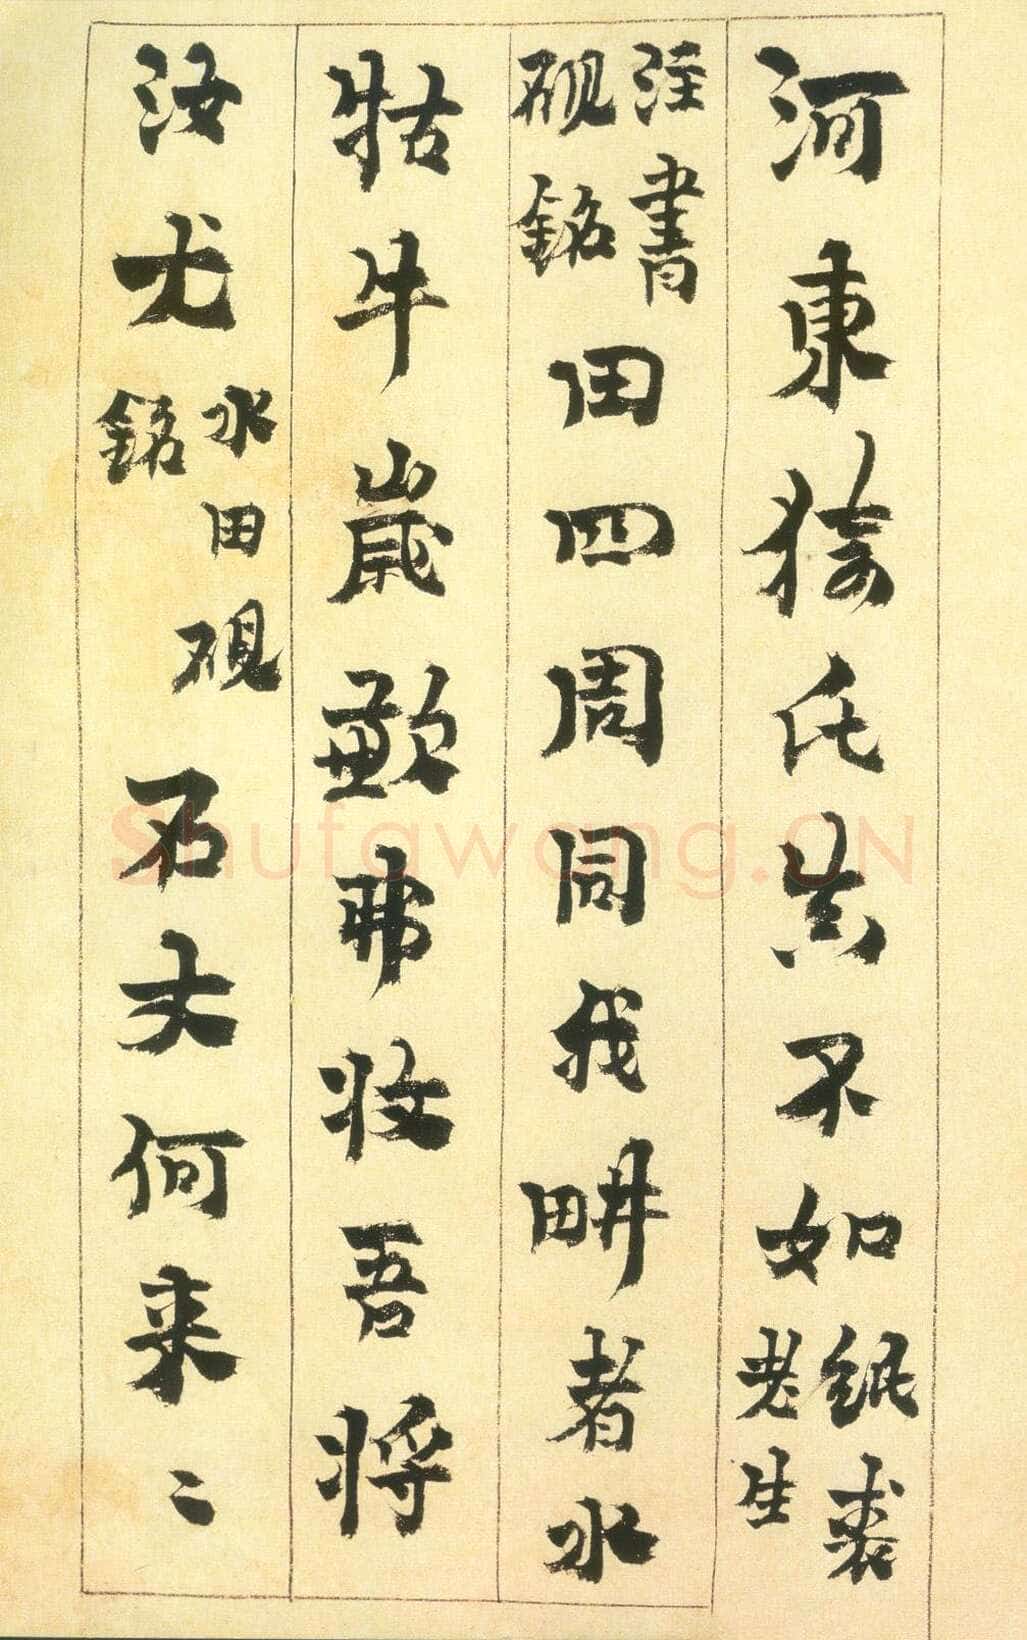 河東猗氏其不如紙裘老生
注書硯銘田四周同我畊者水
牯牛歲歉弗收吾將
汝尤水田硯銘石丈何來〻